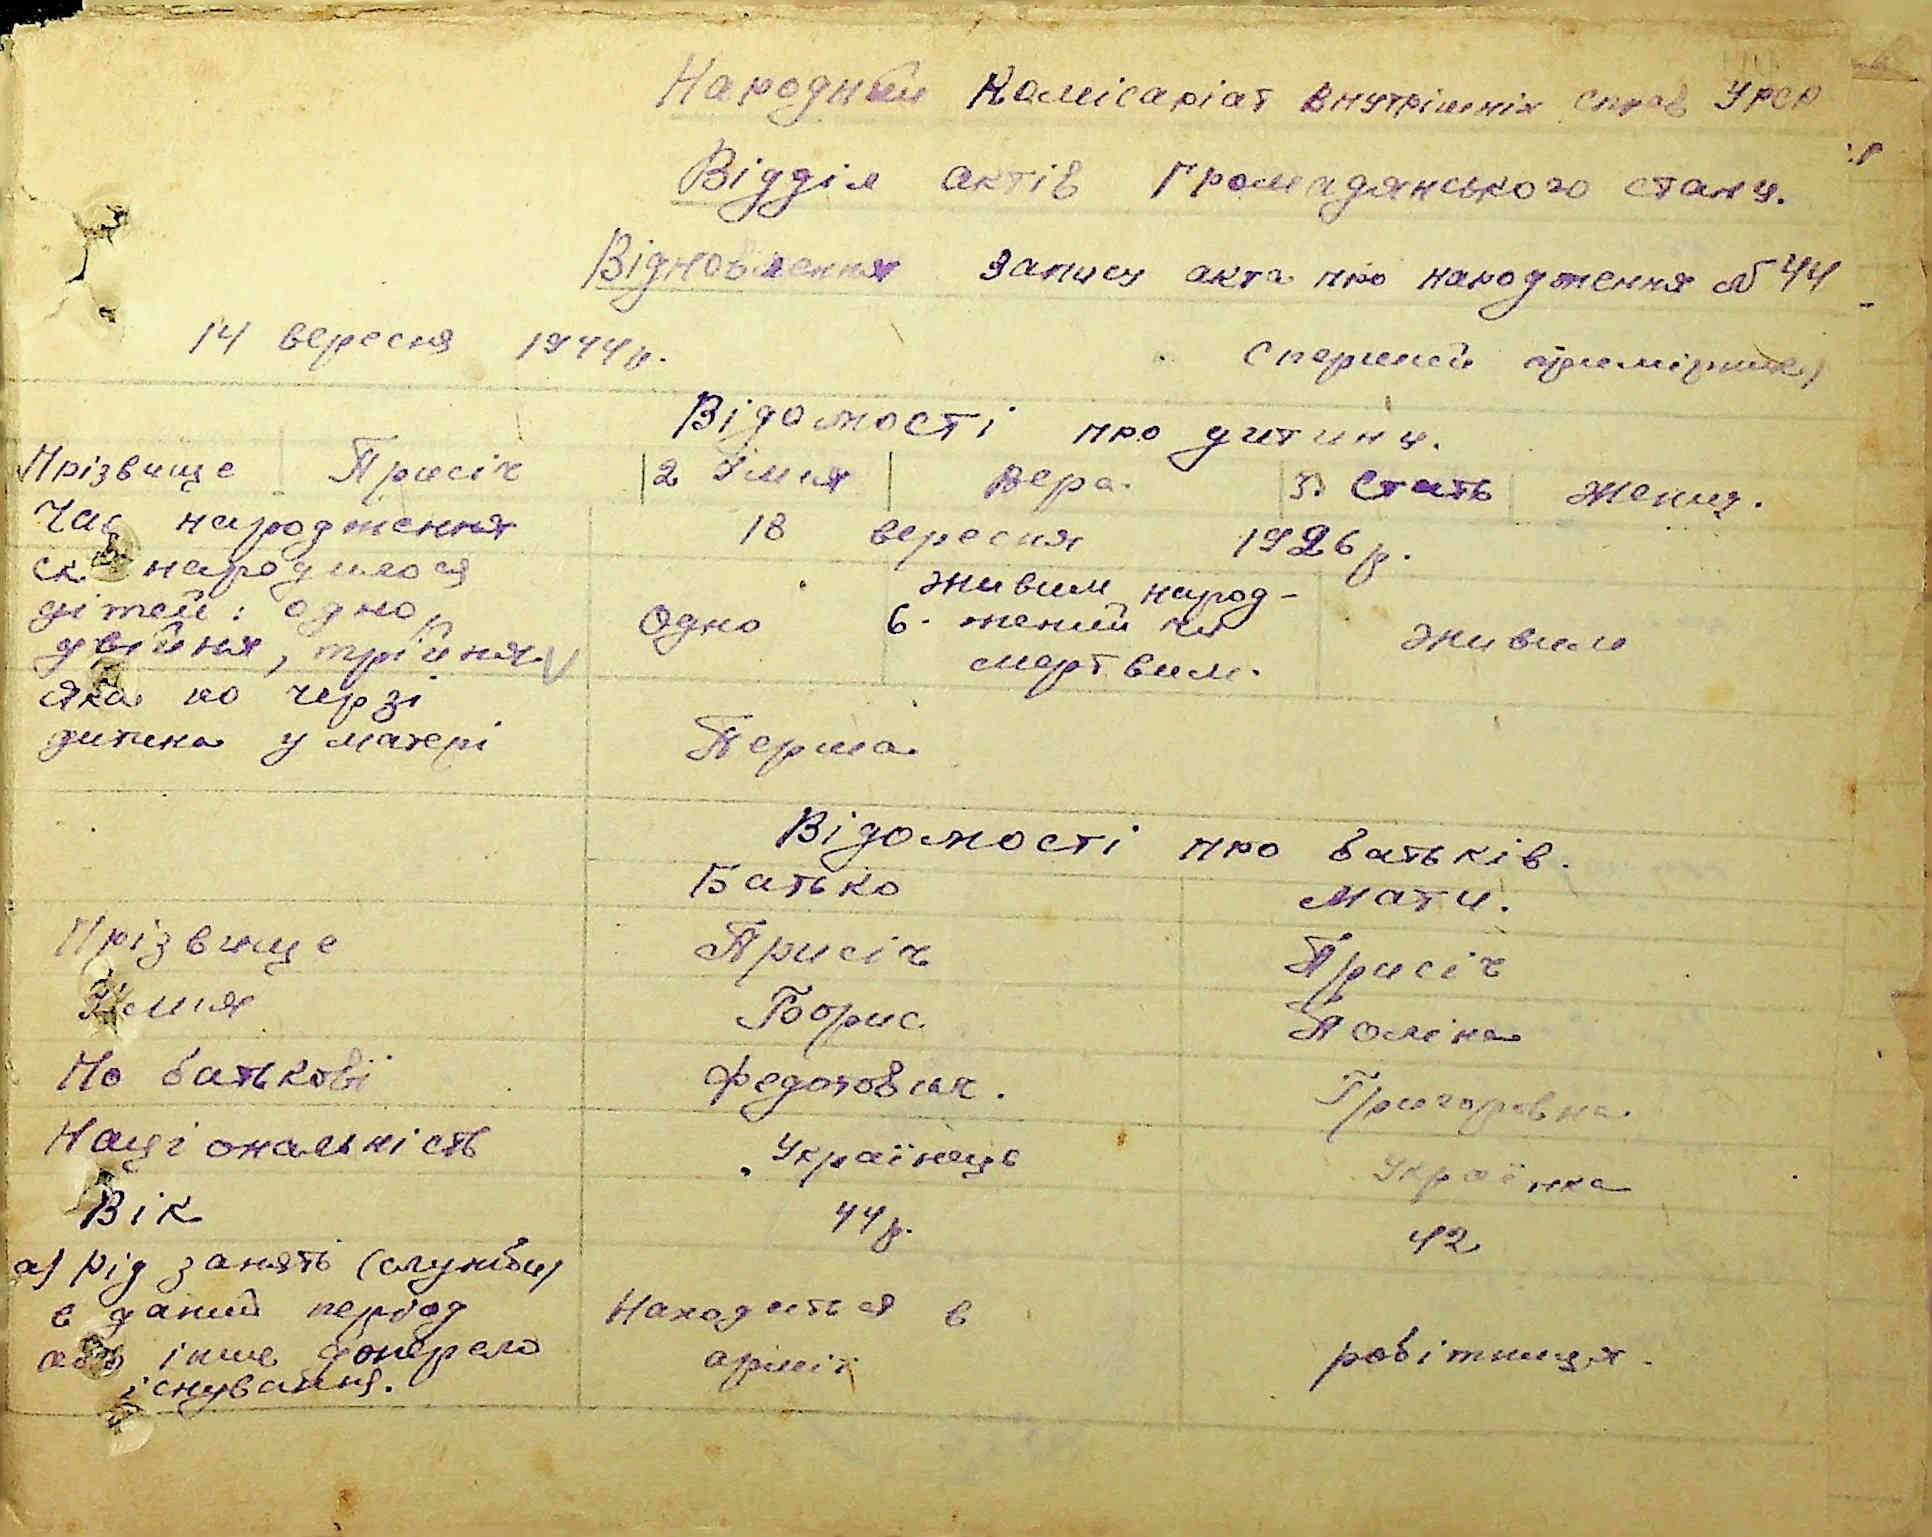 Народний Комісаріат внутрішніх справ УРСР
Відділ актів громадянського стану.
Відновлення запису акта про народження № 44
14 вересня 1944р.
(перший примірник)
Відомості про дитину.
Прізвище Присіч 2 Імия Вера. 3. Стать женщ.
Час народження 18 вересня 1926р.
ск. народилося
дітей: одно,
двійня, трійня
Одно
6. живим народ-
жений чи
мертвим.
живим
яка по черзі
дитина у матері
Перша
Відомості про батьків.
Батько Мати.
Прізвище Присіч Присіч
Імия Борис Поліна
По батькові Федотович. Григоровна
Національність Українець Українка
Вік 44р. 42
а) Рід занять (служби)
в даний період
або інше джерело
існування.
Находиться в
армії
робітниця.